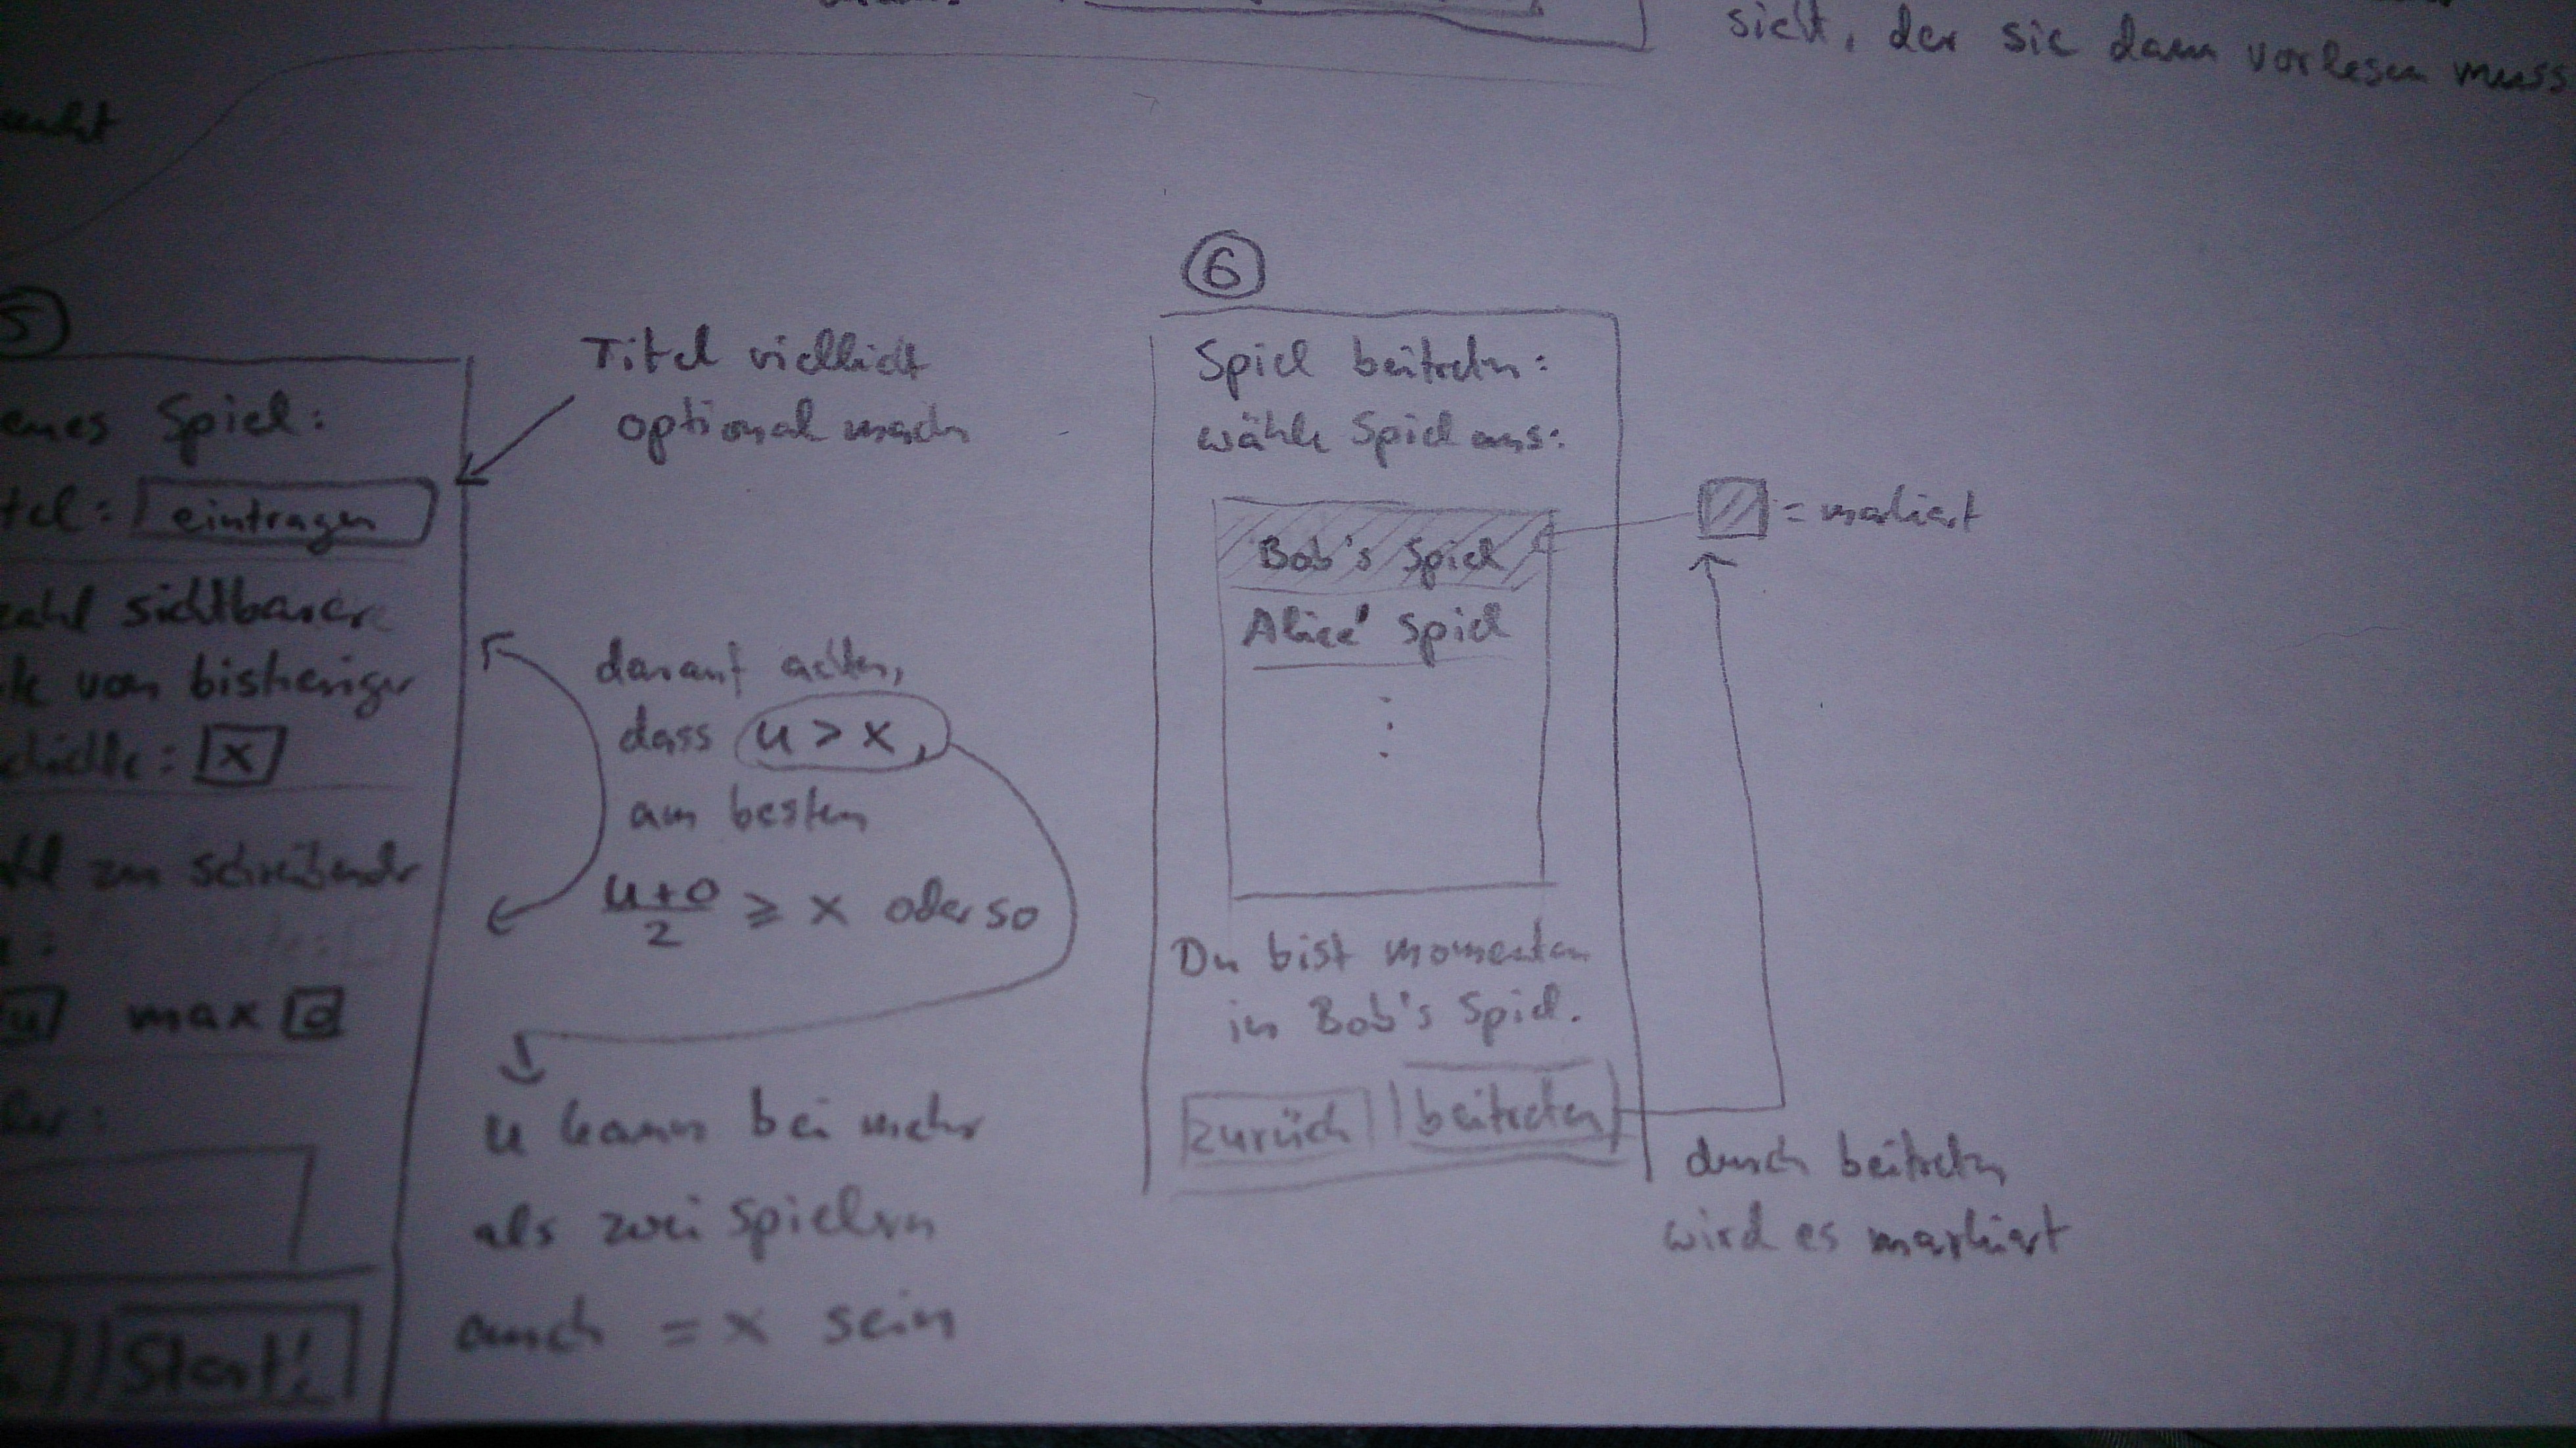 sieht, der sie dann vorlesen muss
5
enes Spiel:
tel: eintragen
zahl sichtbarer
te von bisheriger
chichte: x
hl zu schreibender
u max o
Start!
Titel vielleicht
optional machen
darauf achten,
dass u > x,
am besten
u+o/2 ≥ x oder so
u kann bei mehr
als zwei Spielern
auch = x sein
6
Spiel beitreten:
wähle Spiel aus:
Bob's Spiel
Alice' Spiel
Du bist momentan
in Bob's Spiel.
zurück beitreten
= markiert
durch beitreten
wird es markiert